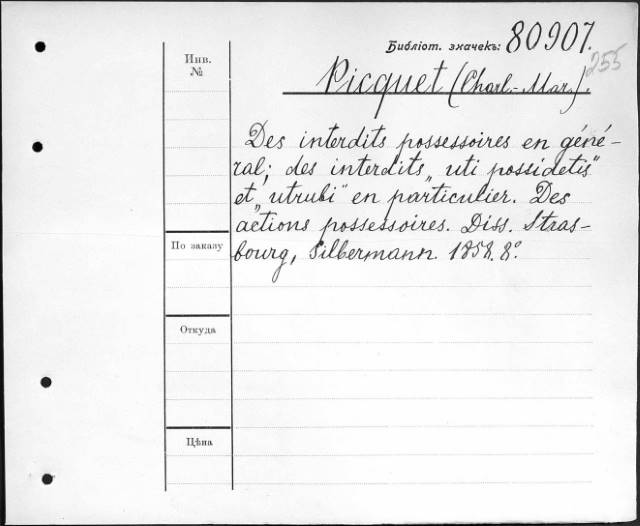 Библіот. значекъ: 80907.
255
Инв.
№
Picquet (Charl.-Mar.).
Des interdits possessoires en géné-
ral; des interdits „uti possidetis"
et „utrubi" en particulier. Des
actions possessoires. Diss. Stras-
По заказу
bourg, Silbermann. 1858. 8°.
Откуда
Цѣна